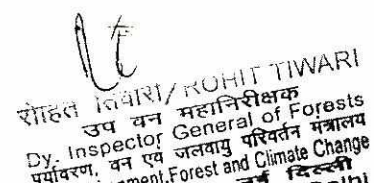 रोहित तिवारी/ROHIT TIWARI
उप वन महानिरीक्षक
Dy. Inspector General of Forests
पर्यावरण, वन एवं जलवायु परिवर्तन मंत्रालय
Forest and Climate Change
नई दिल्ली